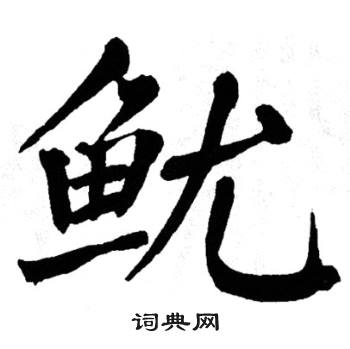 鱿
词典网